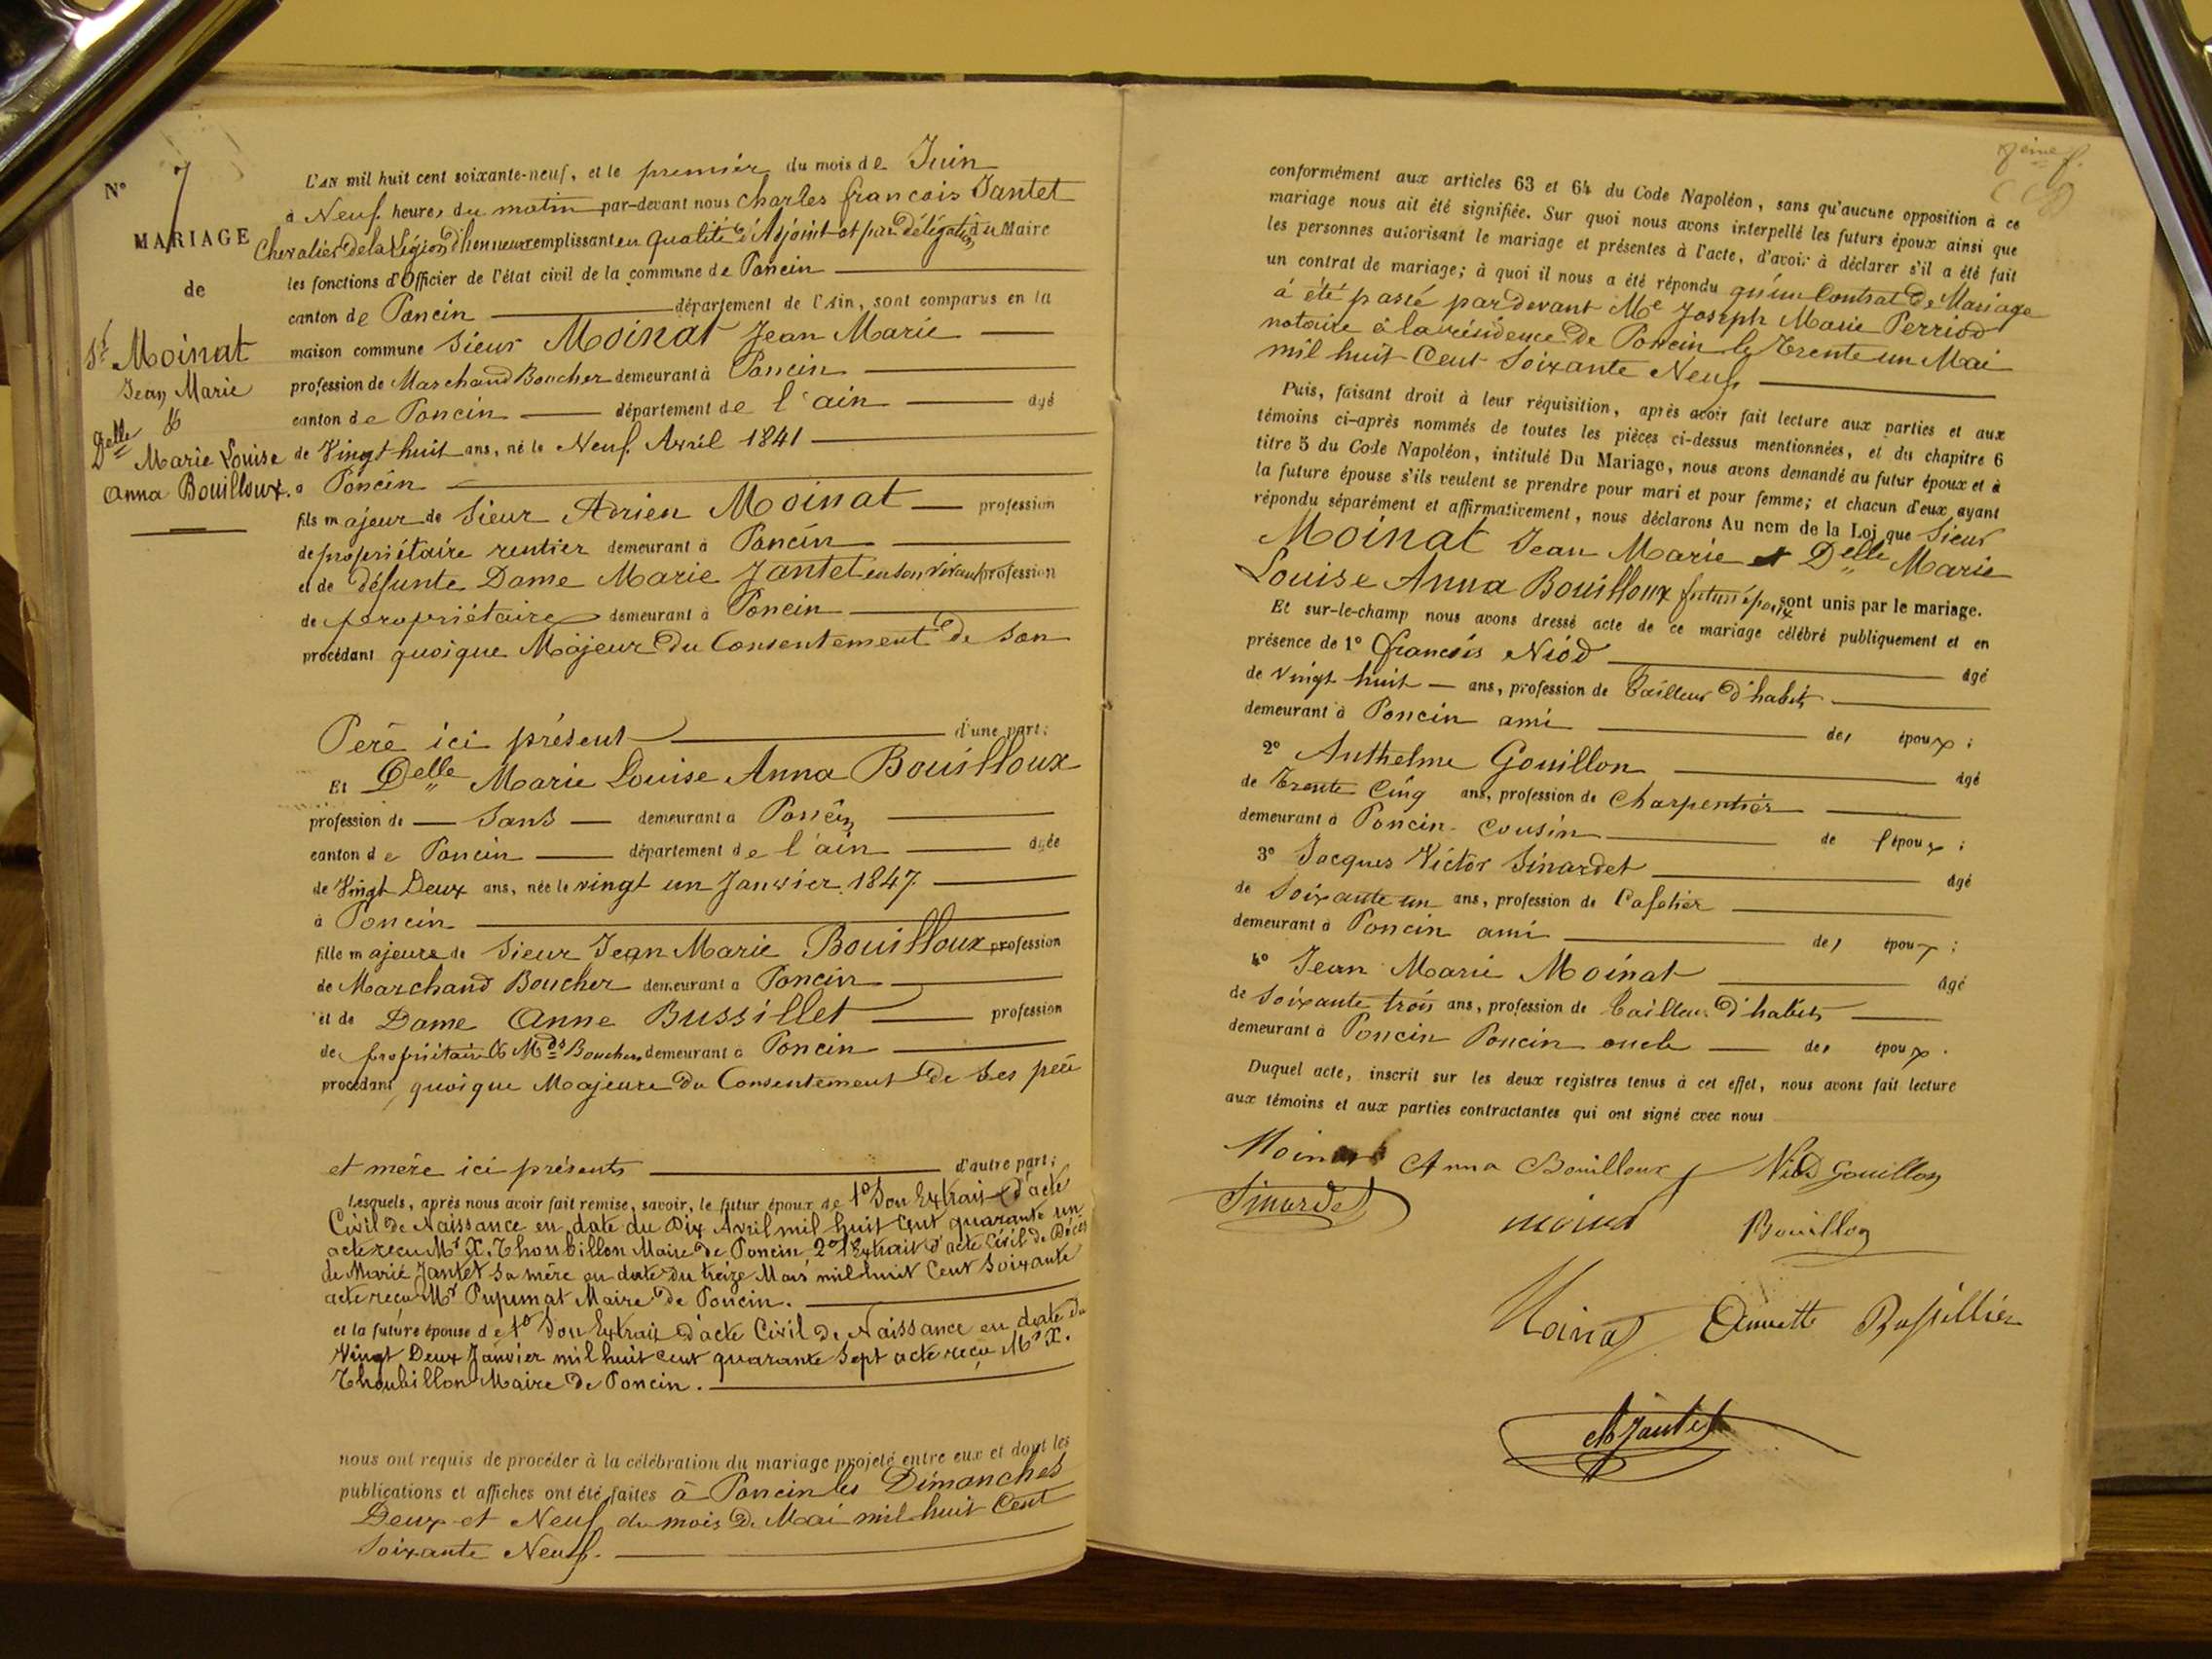 N° 7
MARIAGE
de
Sr Moinat
Jean Marie
&
Delle Marie Louise
Anna Bouilloux.
L'AN mil huit cent soixante-neuf, et le premier du mois de Juin
à Neuf heures du matin par-devant nous Charles françois Jantet
Chevalier de la Légion d'honneur remplissant en qualité d'Adjoint et par délégation du Maire
les fonctions d'Officier de l'état civil de la commune de Poncin
canton de Poncin département de l'Ain, sont comparus en la
maison commune Sieur Moinat Jean Marie
profession de Marchand Boucher demeurant à Poncin
canton de Poncin département de l'ain âgé
de Vingt huit ans, né le Neuf Avril 1841
à Poncin
fils majeur de Sieur Adrien Moinat profession
de propriétaire rentier demeurant à Poncin
et de défunte Dame Marie Jantet en son vivant profession
de propriétaire demeurant à Poncin
procédant quoique Majeur du Consentement de son
Père ici présent d'une part;
Et Delle Marie Louise Anna Bouilloux
profession de Sans demeurant à Poncin
canton de Poncin département de l'ain âgée
de Vingt Deux ans, née le vingt un Janvier 1847
à Poncin
fille majeure de Sieur Jean Marie Bouilloux profession
de Marchand Boucher demeurant à Poncin
et de Dame Anne Bussillet profession
de propriétaire & Mde Boucher demeurant à Poncin
procédant quoique Majeure du Consentement de ses père
et mère ici présents d'autre part;
Lesquels, après nous avoir fait remise, savoir, le futur époux de 1° Son Extrait d'acte
Civil de Naissance en date du Dix Avril mil huit Cent quarante un
acte reçu Mr X. Thoubillon Maire de Poncin 2° l'Extrait d'acte Civil de Décès
de Marie Jantet sa mère en date du treize Mars mil huit Cent Soixante
acte reçu Mr Pupunat Maire de Poncin.
et la future épouse de 1° Son Extrait d'acte Civil de Naissance en date du
Vingt Deux Janvier mil huit cent quarante Sept acte reçu Mr X.
Thoubillon Maire de Poncin.
nous ont requis de procéder à la célébration du mariage projeté entre eux et dont les
publications et affiches ont été faites à Poncin les Dimanches
Deux et Neuf du mois de Mai mil huit Cent
Soixante Neuf.
7eme f.
conformément aux articles 63 et 64 du Code Napoléon, sans qu'aucune opposition à ce
mariage nous ait été signifiée. Sur quoi nous avons interpellé les futurs époux ainsi que
les personnes autorisant le mariage et présentes à l'acte, d'avoir à déclarer s'il a été fait
un contrat de mariage; à quoi il nous a été répondu qu'un Contrat de Mariage
à été passé par devant Me Joseph Marie Perriod
notaire à la résidence de Poncin le Trente un Mai
mil huit Cent Soixante Neuf
Puis, faisant droit à leur réquisition, après avoir fait lecture aux parties et aux
témoins ci-après nommés de toutes les pièces ci-dessus mentionnées, et du chapitre 6
titre 5 du Code Napoléon, intitulé Du Mariage, nous avons demandé au futur époux et à
la future épouse s'ils veulent se prendre pour mari et pour femme; et chacun d'eux ayant
répondu séparément et affirmativement, nous déclarons Au nom de la Loi que Sieur
Moinat Jean Marie et Delle Marie
Louise Anna Bouilloux futurs époux sont unis par le mariage.
Et sur-le-champ nous avons dressé acte de ce mariage célébré publiquement et en
présence de 1° françois Niod âgé
de vingt huit ans, profession de tailleur d'habits
demeurant à Poncin ami des époux;
2° Anthelme Gouillon âgé
de Trente Cinq ans, profession de Charpentier
demeurant à Poncin cousin de l'époux;
3° Jacques Victor Sinardet âgé
de Soixante un ans, profession de Cafetier
demeurant à Poncin ami des époux;
4° Jean Marie Moinat âgé
de Soixante trois ans, profession de tailleur d'habits
demeurant à Poncin Poncin oncle des époux.
Duquel acte, inscrit sur les deux registres tenus à cet effet, nous avons fait lecture
aux témoins et aux parties contractantes qui ont signé avec nous
Moinat Anna Bouilloux Niod Gouillon
Sinardet moinat Bouillou
Moinat Annette Bussillier
Ch Jantet